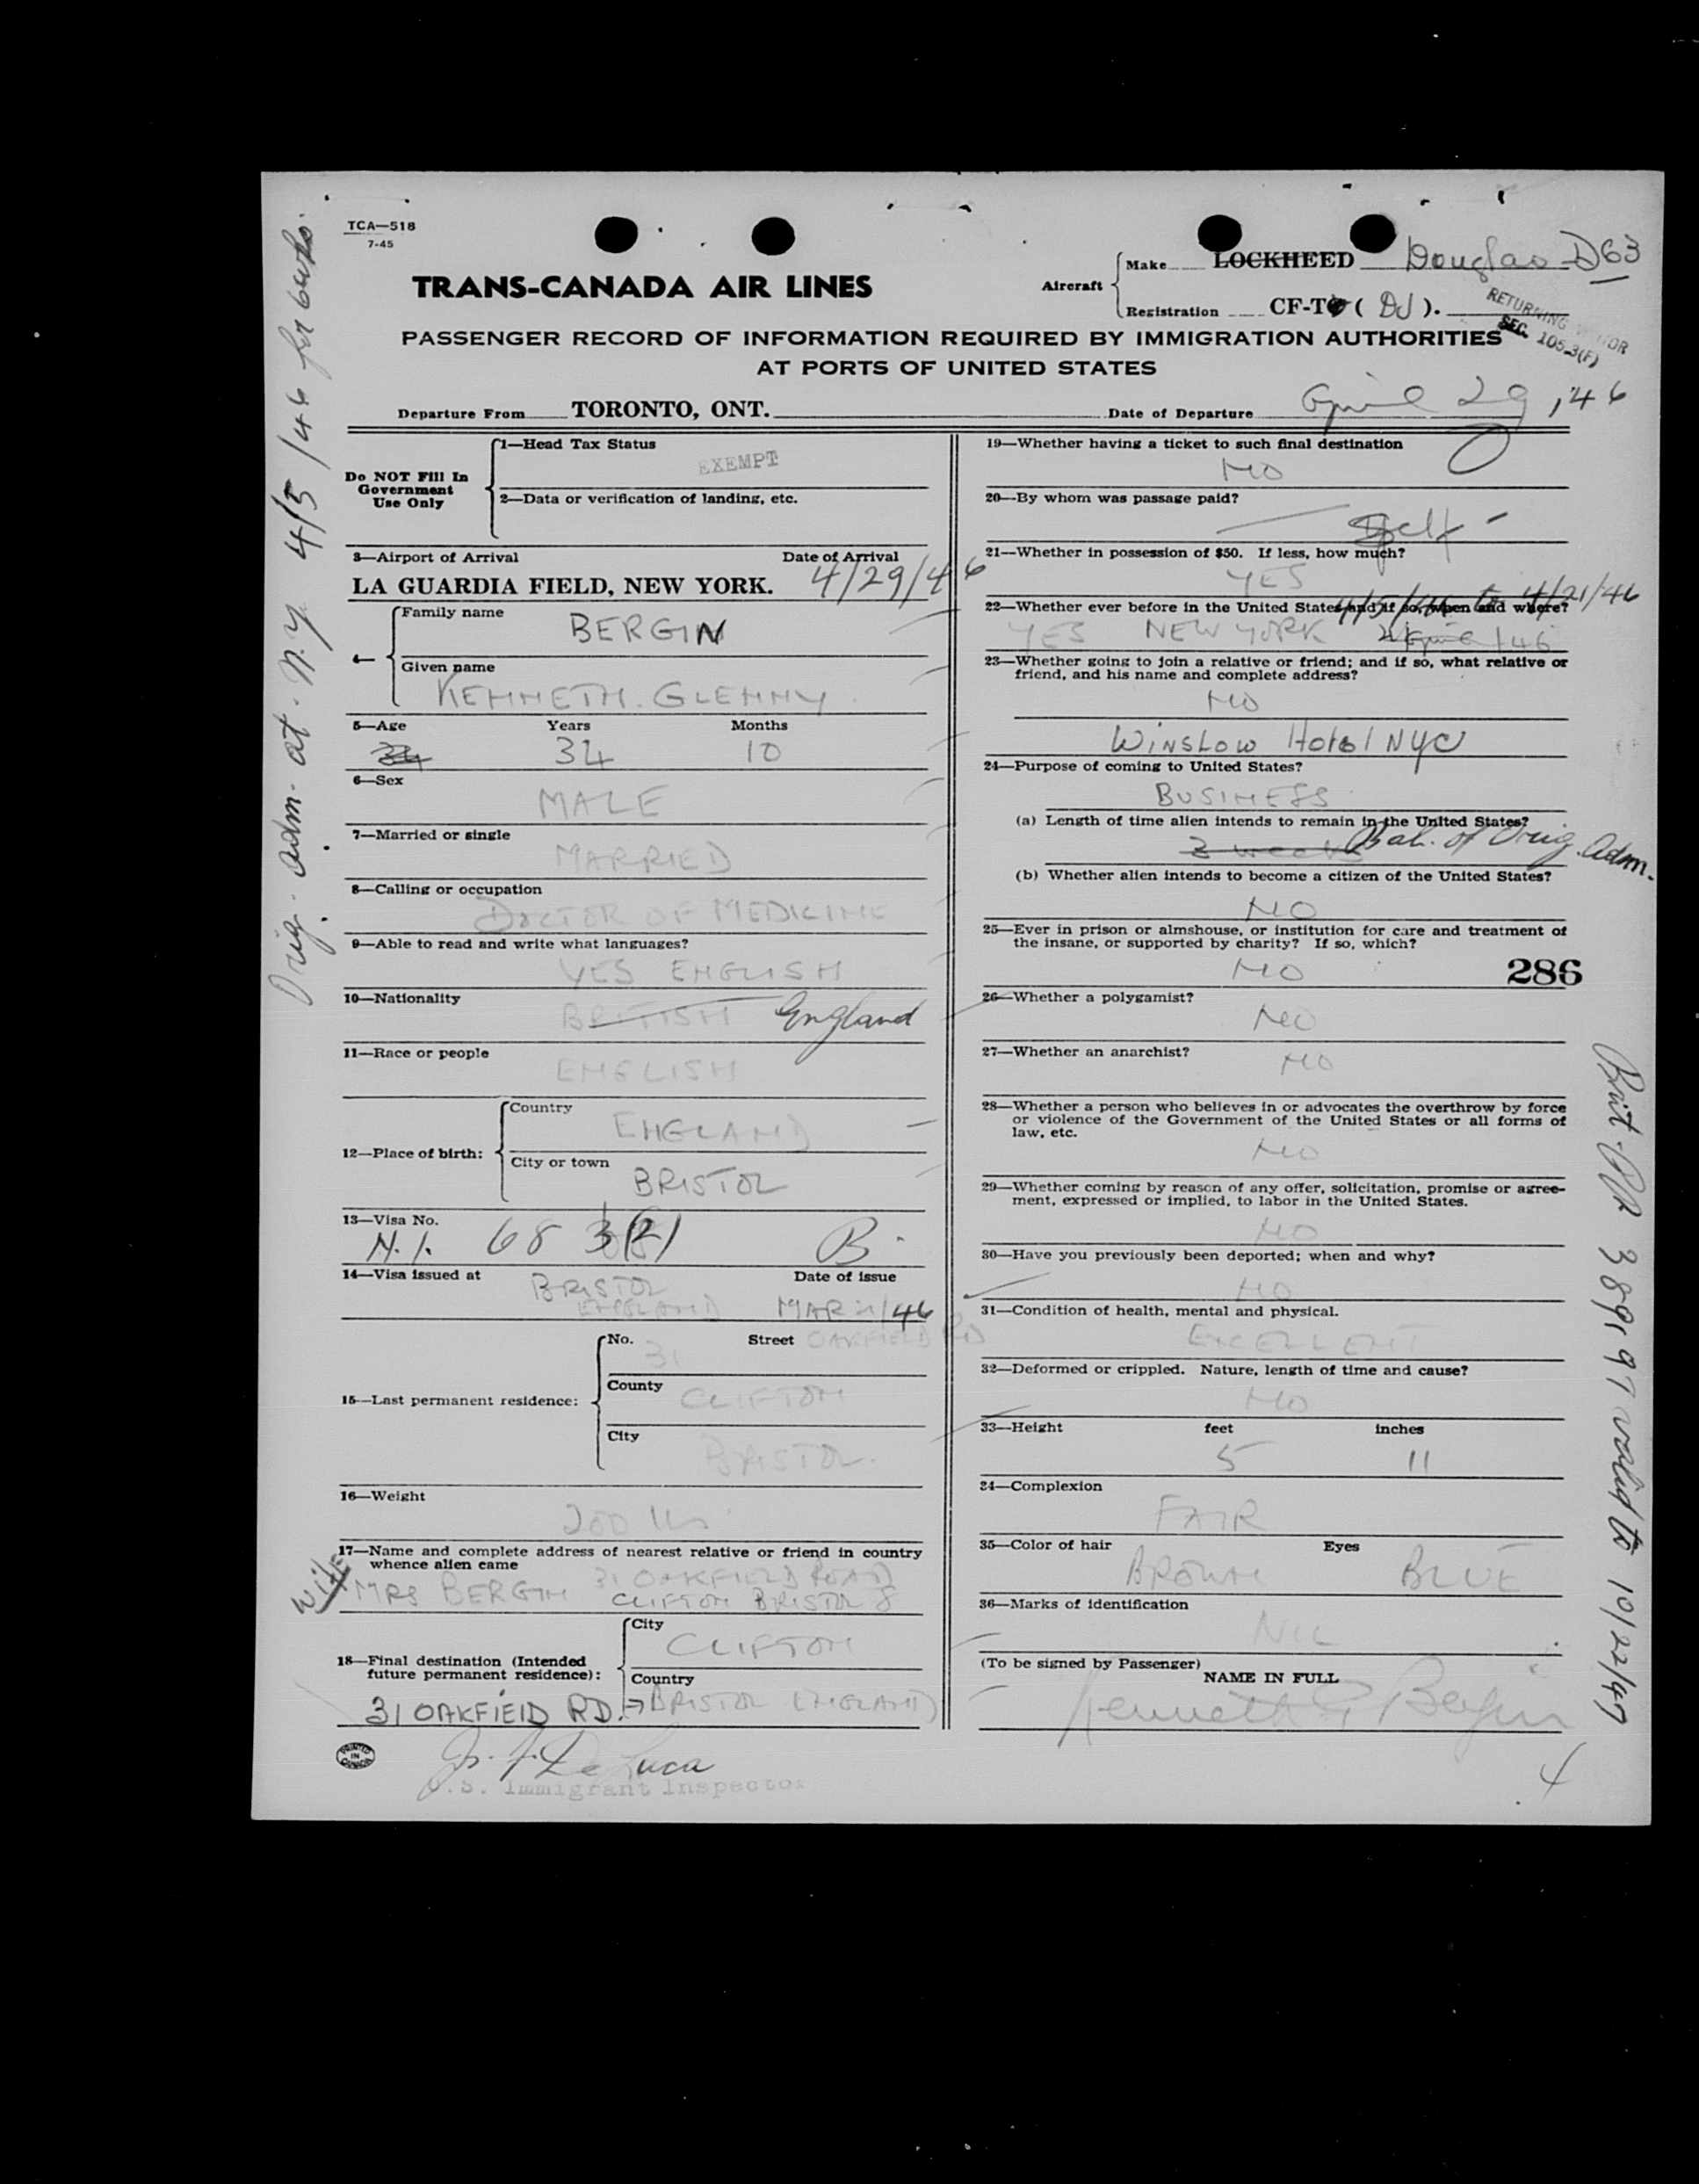 TCA—518
7-45
Make LOCKHEED Douglas
Aircraft
Registration CF-T ( DJ ).
TRANS-CANADA AIR LINES
RETURNING
SEC. 105.3(F)
PASSENGER RECORD OF INFORMATION REQUIRED BY IMMIGRATION AUTHORITIES
AT PORTS OF UNITED STATES
Departure From TORONTO, ONT. Date of Departure April 29, '46
Do NOT Fill In
Government
Use Only
1—Head Tax Status
EXEMPT
2—Data or verification of landing, etc.
3—Airport of Arrival Date of Arrival
LA GUARDIA FIELD, NEW YORK. 4/29/46
4—
Family name
BERGIN
Given name
KENNETH. GLENNY
5—Age Years Months
34 34 10
6—Sex
MALE
7—Married or single
MARRIED
8—Calling or occupation
DOCTOR OF MEDICINE
9—Able to read and write what languages?
YES ENGLISH
10—Nationality
BRITISH England
11—Race or people
ENGLISH
12—Place of birth:
Country
ENGLAND
City or town
BRISTOL
13—Visa No.
N.I. 68 B
14—Visa issued at Date of issue
BRISTOL
ENGLAND MAR /46
15—Last permanent residence:
No. Street OAKFIELD RD
31
County
CLIFTON
City
BRISTOL.
16—Weight
200 lbs
17—Name and complete address of nearest relative or friend in country
whence alien came
31 OAKFIELD ROAD
Wife MRS BERGIN CLIFTON BRISTOL 8
18—Final destination (Intended
future permanent residence):
City
CLIFTON
Country
31 OAKFIELD RD. BRISTOL ENGLAND
PRINTED
IN
CANADA
De Luca
U.S. Immigrant Inspector
19—Whether having a ticket to such final destination
NO
20—By whom was passage paid?
Self
21—Whether in possession of $50. If less, how much?
YES
22—Whether ever before in the United States and if so, when and where?
4/5/46 to 4/21/46
YES NEW YORK April /46
23—Whether going to join a relative or friend; and if so, what relative or
friend, and his name and complete address?
NO
Winslow Hotel NYC
24—Purpose of coming to United States?
BUSINESS
(a) Length of time alien intends to remain in the United States?
weeks Bal. of Orig. Adm.
(b) Whether alien intends to become a citizen of the United States?
NO
25—Ever in prison or almshouse, or institution for care and treatment of
the insane, or supported by charity? If so, which?
NO
286
26—Whether a polygamist?
NO
27—Whether an anarchist?
NO
28—Whether a person who believes in or advocates the overthrow by force
or violence of the Government of the United States or all forms of
law, etc.
NO
29—Whether coming by reason of any offer, solicitation, promise or agree-
ment, expressed or implied, to labor in the United States.
NO
30—Have you previously been deported; when and why?
NO
31—Condition of health, mental and physical.
EXCELLENT
32—Deformed or crippled. Nature, length of time and cause?
NO
33—Height feet inches
5 11
34—Complexion
FAIR
35—Color of hair Eyes
BROWN BLUE
36—Marks of identification
NIL
(To be signed by Passenger)
NAME IN FULL
Kenneth G Bergin
4
Orig. adm. at N.Y. 4/5/46 for 6 wks.
Brit. PP 38997 valid to 10/22/47